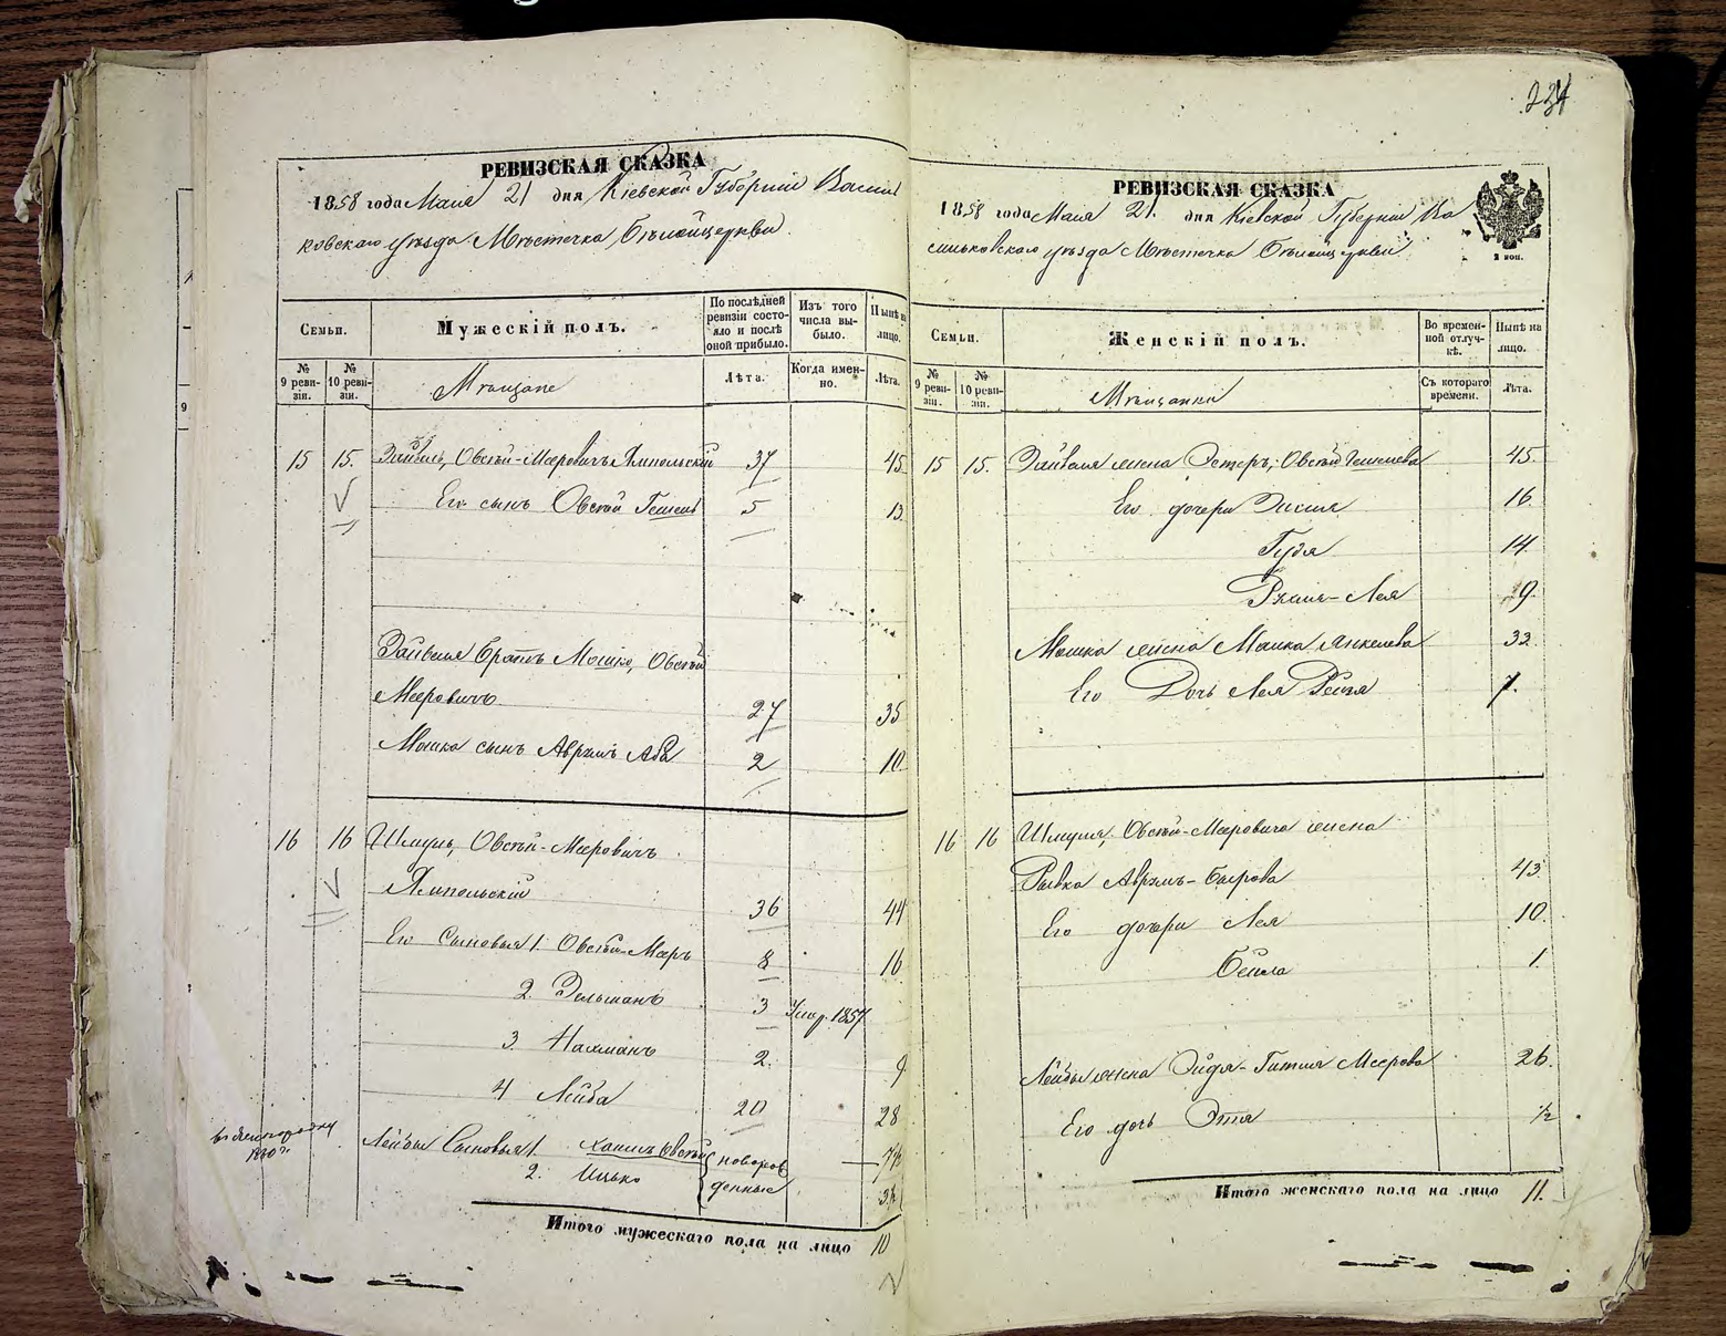 234
РЕВИЗСКАЯ СКАЗКА
1858 года Маія 21 дня Кіевской Губерніи Василь
ковскаго уѣзда Мѣстечка Бѣлойцеркви.
Семьи.
Мужескій полъ.
По послѣдней ревизіи состояло и послѣ оной прибыло.
Изъ того числа выбыло.
Нынѣ на лицо.
№ 9 ревизіи.
№ 10 ревизіи.
Мѣщане
Лѣта.
Когда именно.
Лѣта.
15 15. Зайвель, Овсѣй-Мееровичъ Ямпольскій 37 45
Его сынъ Овсѣй Гешель 5 13
Зайвеля братъ Мошко, Овсѣй
Мееровичъ 27 35
Мошка сынъ Аврумъ Аба 2 10
16 16 Шмуль, Овсѣй-Мееровичъ
Ямпольскій 36 44
Его Сыновья 1. Овсѣй-Мееръ 8 16
2. Зельманъ 3 Умер. 1857
3. Нахманъ 2. 9
4 Лейба 20 28
Лейбы Сыновья 1. Хаимъ Овсѣй новорож 7½
2. Ицько денные 3½
Итого мужескаго пола на лицо 10
РЕВИЗСКАЯ СКАЗКА
1858 года Маія 21. дня Кіевской Губерніи Ва
сильковскаго уѣзда Мѣстечка Бѣлойцеркви
2 коп.
Семьи.
Женскій полъ.
Во временной отлучкѣ.
Нынѣ на лицо.
№ 9 ревизіи.
№ 10 ревизіи.
Мѣщанки
Съ котораго времени.
Лѣта.
15 15. Зайвеля жена Эстеръ, Овсѣй Гешелева 45
Его дочери 16
Гудя 14
Рухль-Лея 9.
Мошка жена Малка Янкелева 33
Его Дочь Лея Рейзя 7.
16 16 Шмуля, Овсѣй-Мееровича жена
Рывка Аврумъ-Берова 43
Его дочери Лея 10.
Бейла 1.
Лейбы жена Эйдя-Гитля Меерова 26.
Его дочь Этя ½
Итого женскаго пола на лицо 11.